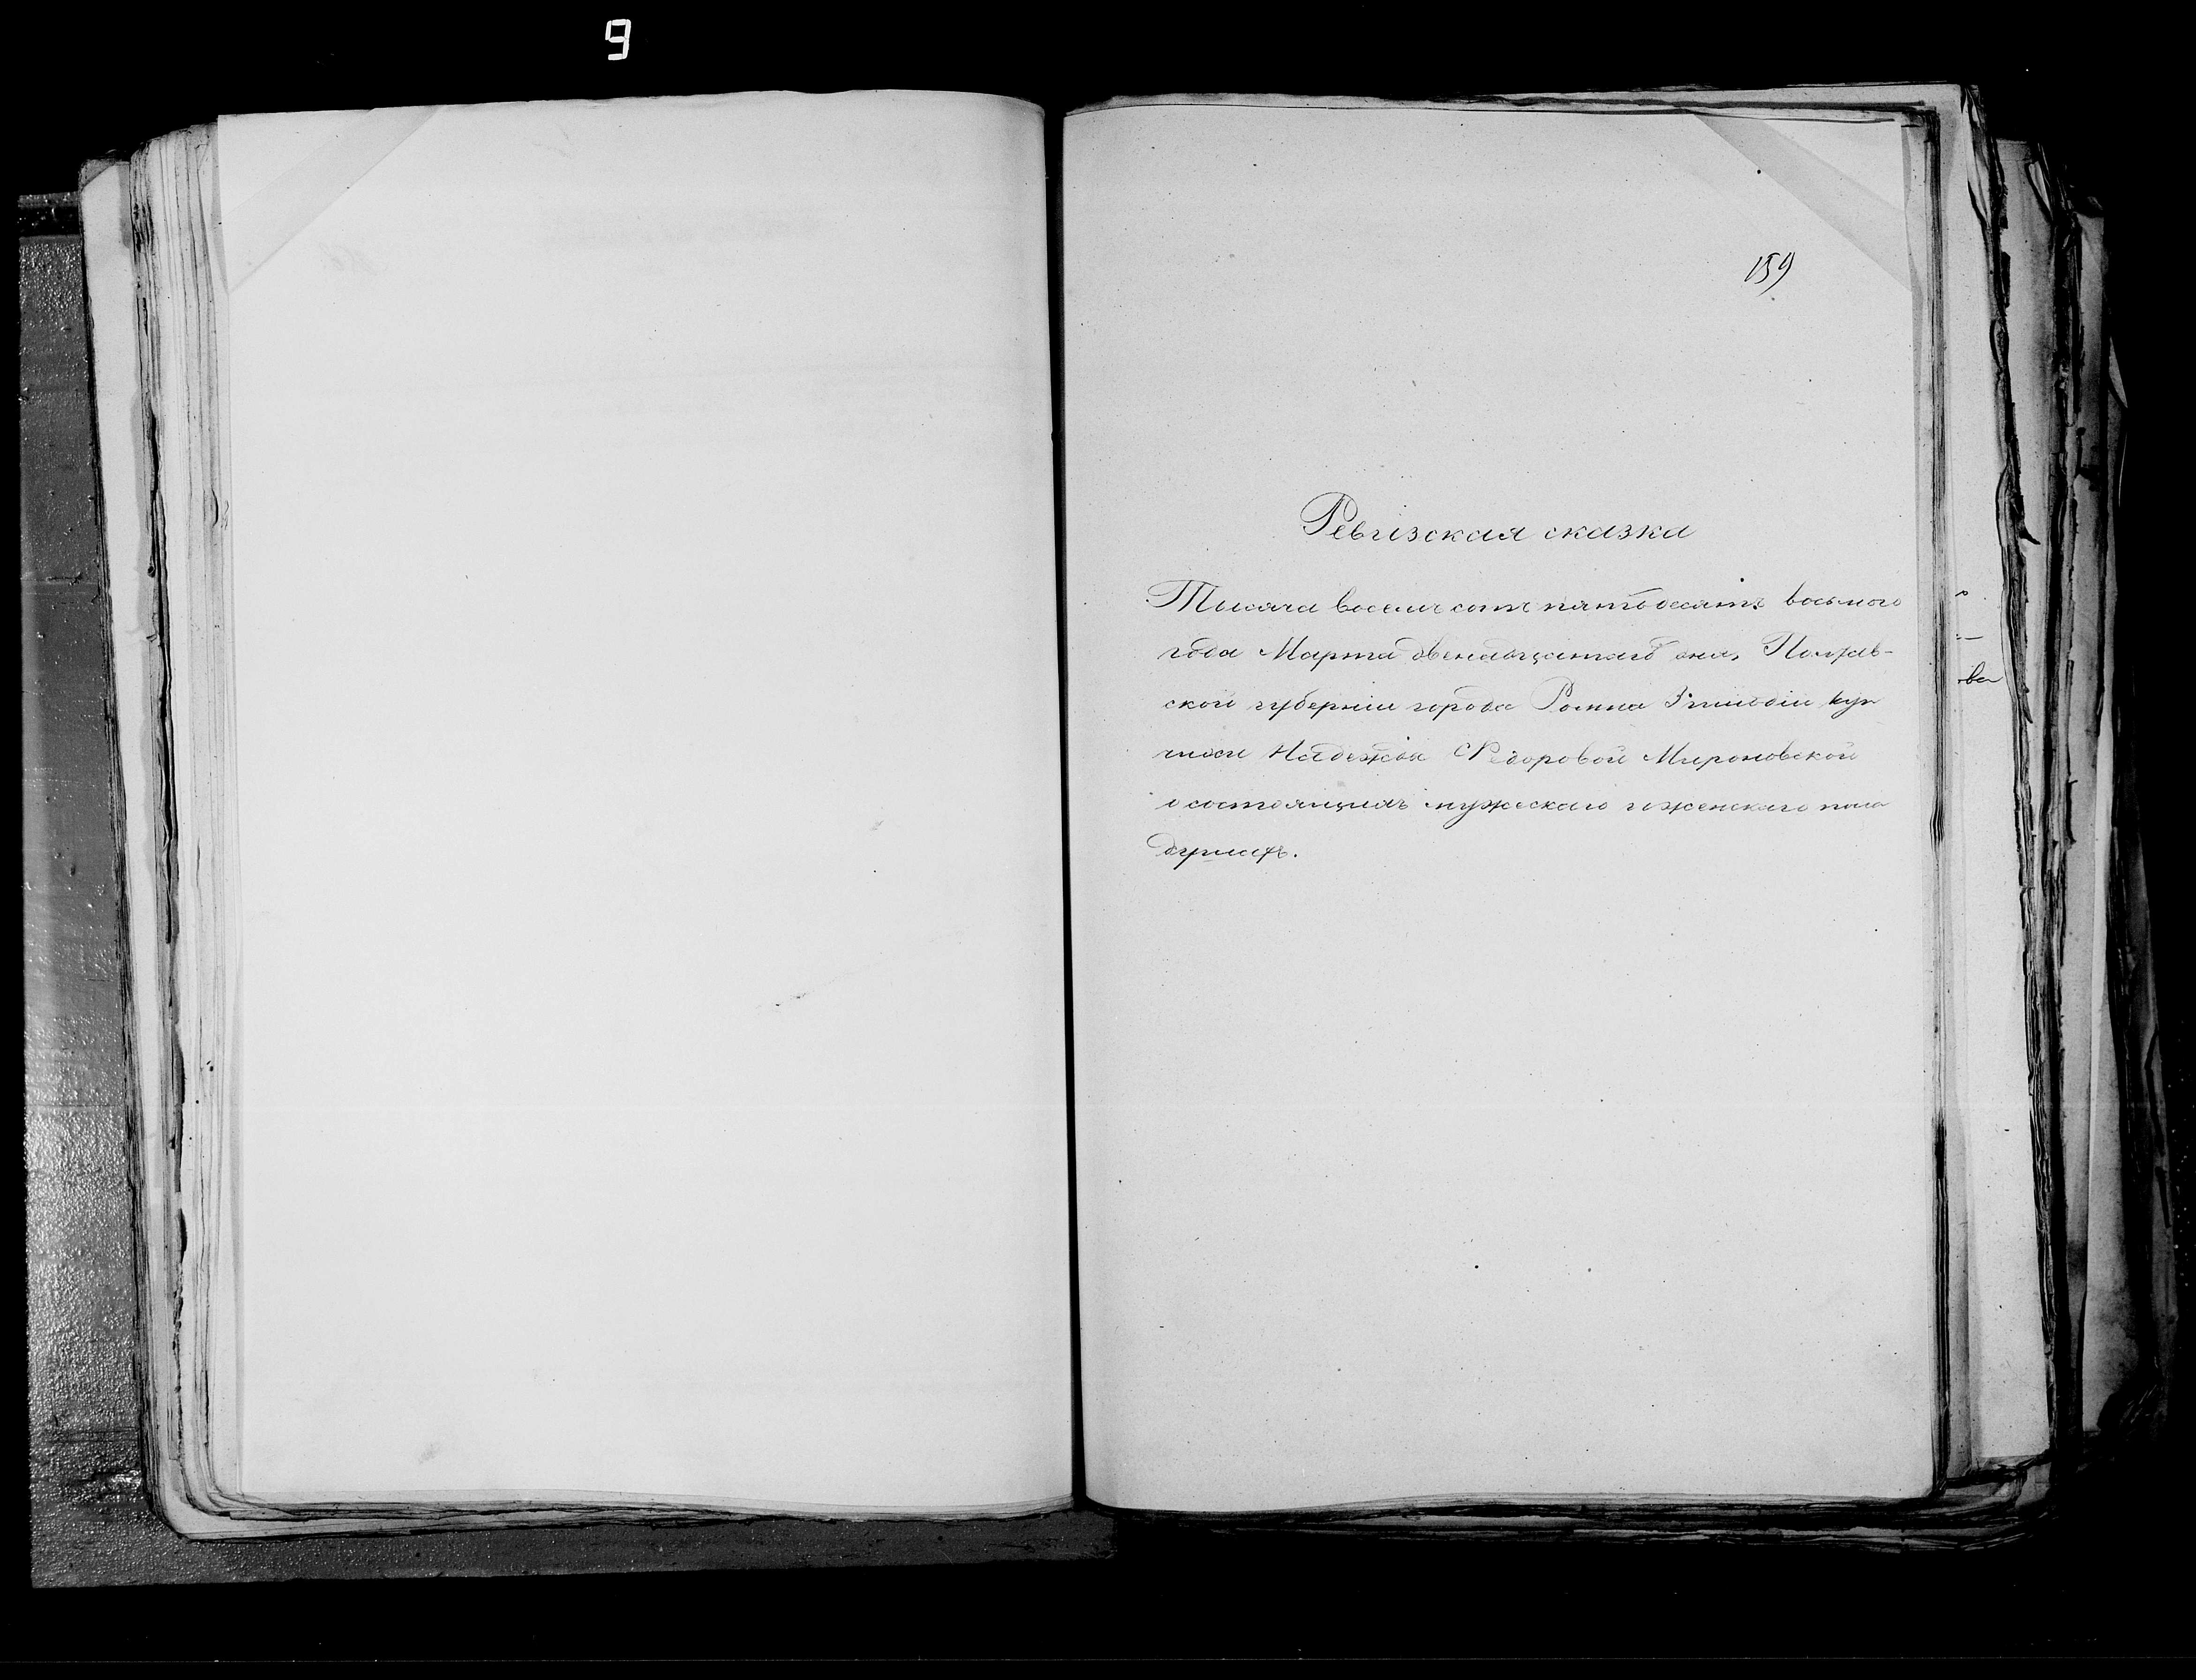 9
159
Ревизская сказка
Тысяча восемь сотъ пятьдесятъ восьмого
года Марта двенадцатаго дня, Полтав-
ской губерніи города Ромна 3 гильдіи куп
чихи Надежды Федоровой Мироновской
о состоящихъ мужескаго и женскаго пола
душахъ.
ва